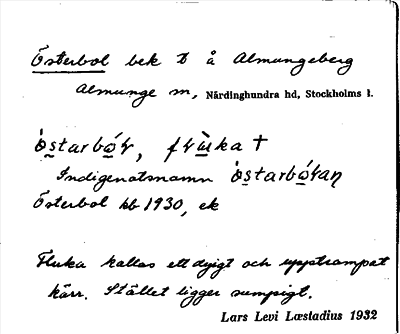 Österbol bek t å Almungeberg
Almunge sn, Närdinghundra hd, Stockholms l.
òstarbó̱ɫ, fɫù̱ka †
Indigenatsnamn òstarbó̱ɫaɳ
Österbol hb 1930, ek
Fluka kallas ett dyigt och upptrampat
kärr. Stället ligger sumpigt.
Lars Levi Læstadius 1932